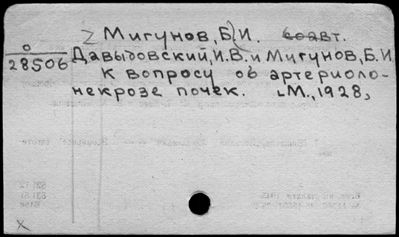 Мигунов, Б.И. соавт.
О
28506
Давыдовский, И.В. и Мигунов, Б.И.
К вопросу об артериоло-
некрозе почек. М., 1928,